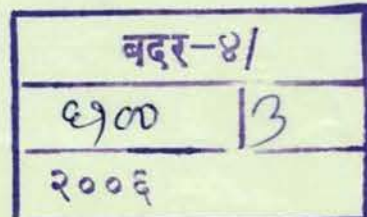 बदर-४/
६१०० | ३
२००६